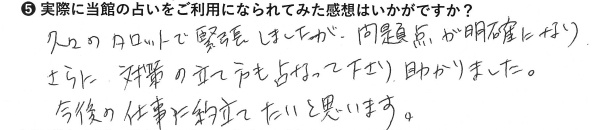 ❺実際に当館の占いをご利用になられてみた感想はいかがですか？
久々のタロットで緊張しましたが、問題点が明確になり
さらに 対策の立て方も占なって下さり 助かりました。
今後の仕事に役立てたいと思います。